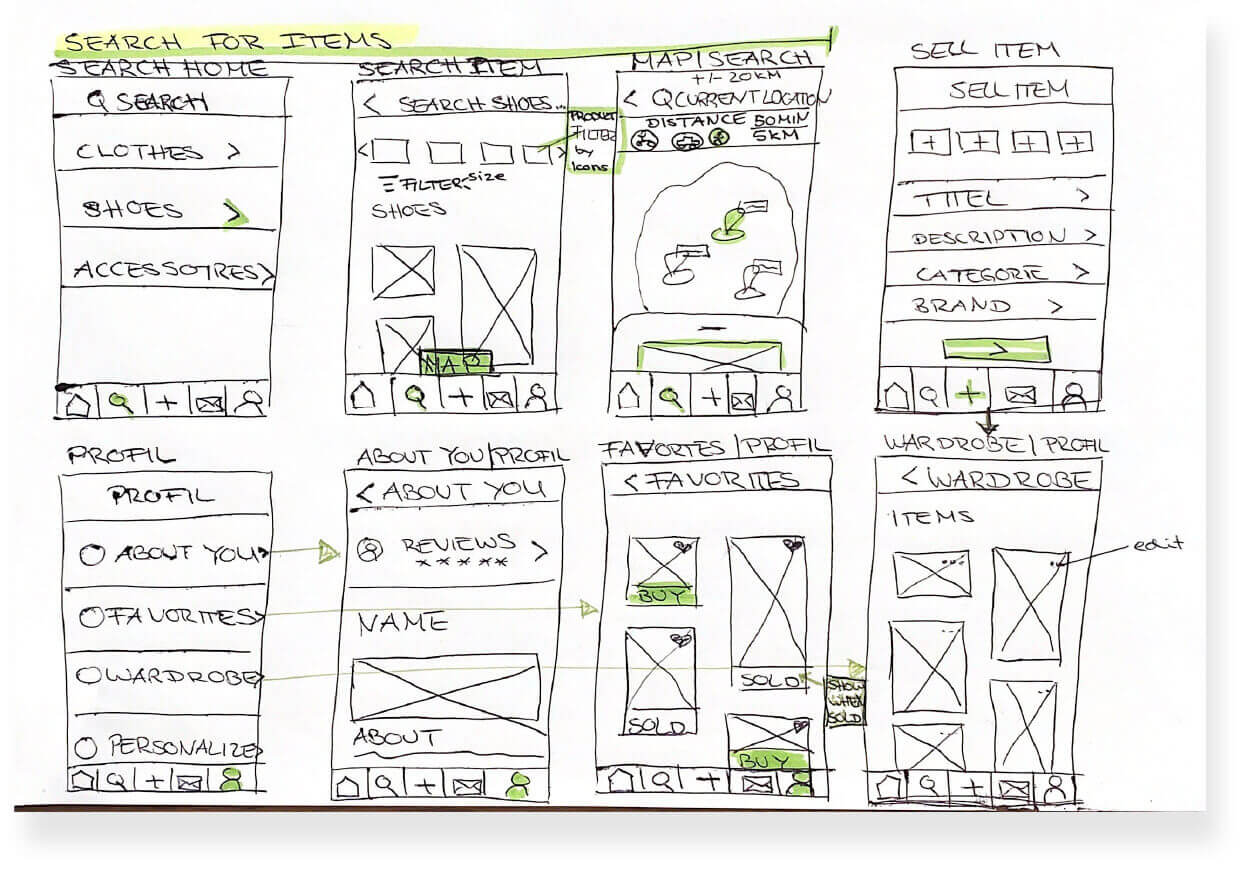 SEARCH FOR ITEMS
SEARCH HOME
SEARCH
CLOTHES >
SHOES >
ACCESSOIRES>
SEARCH ITEM
< SEARCH SHOES...
PRODUCT
FILTER
by
Icons
< >
FILTER size
SHOES
MAP
MAP|SEARCH
+/- 20KM
< CURRENT LOCATION
DISTANCE 50 MIN
5KM
SELL ITEM
SELL ITEM
+ + + +
TITEL >
DESCRIPTION >
CATEGORIE >
BRAND >
>
PROFIL
PROFIL
ABOUT YOU>
FAVORITES>
WARDROBE>
PERSONALIZE>
ABOUT YOU/PROFIL
< ABOUT YOU
REVIEWS >
*****
NAME
ABOUT
FAVORTES |PROFIL
< FAVORITES
BUY
SOLD
SOLD
BUY
SHOW
WHEN
SOLD
WARDROBE| PROFIL
< WARDROBE
ITEMS
edit